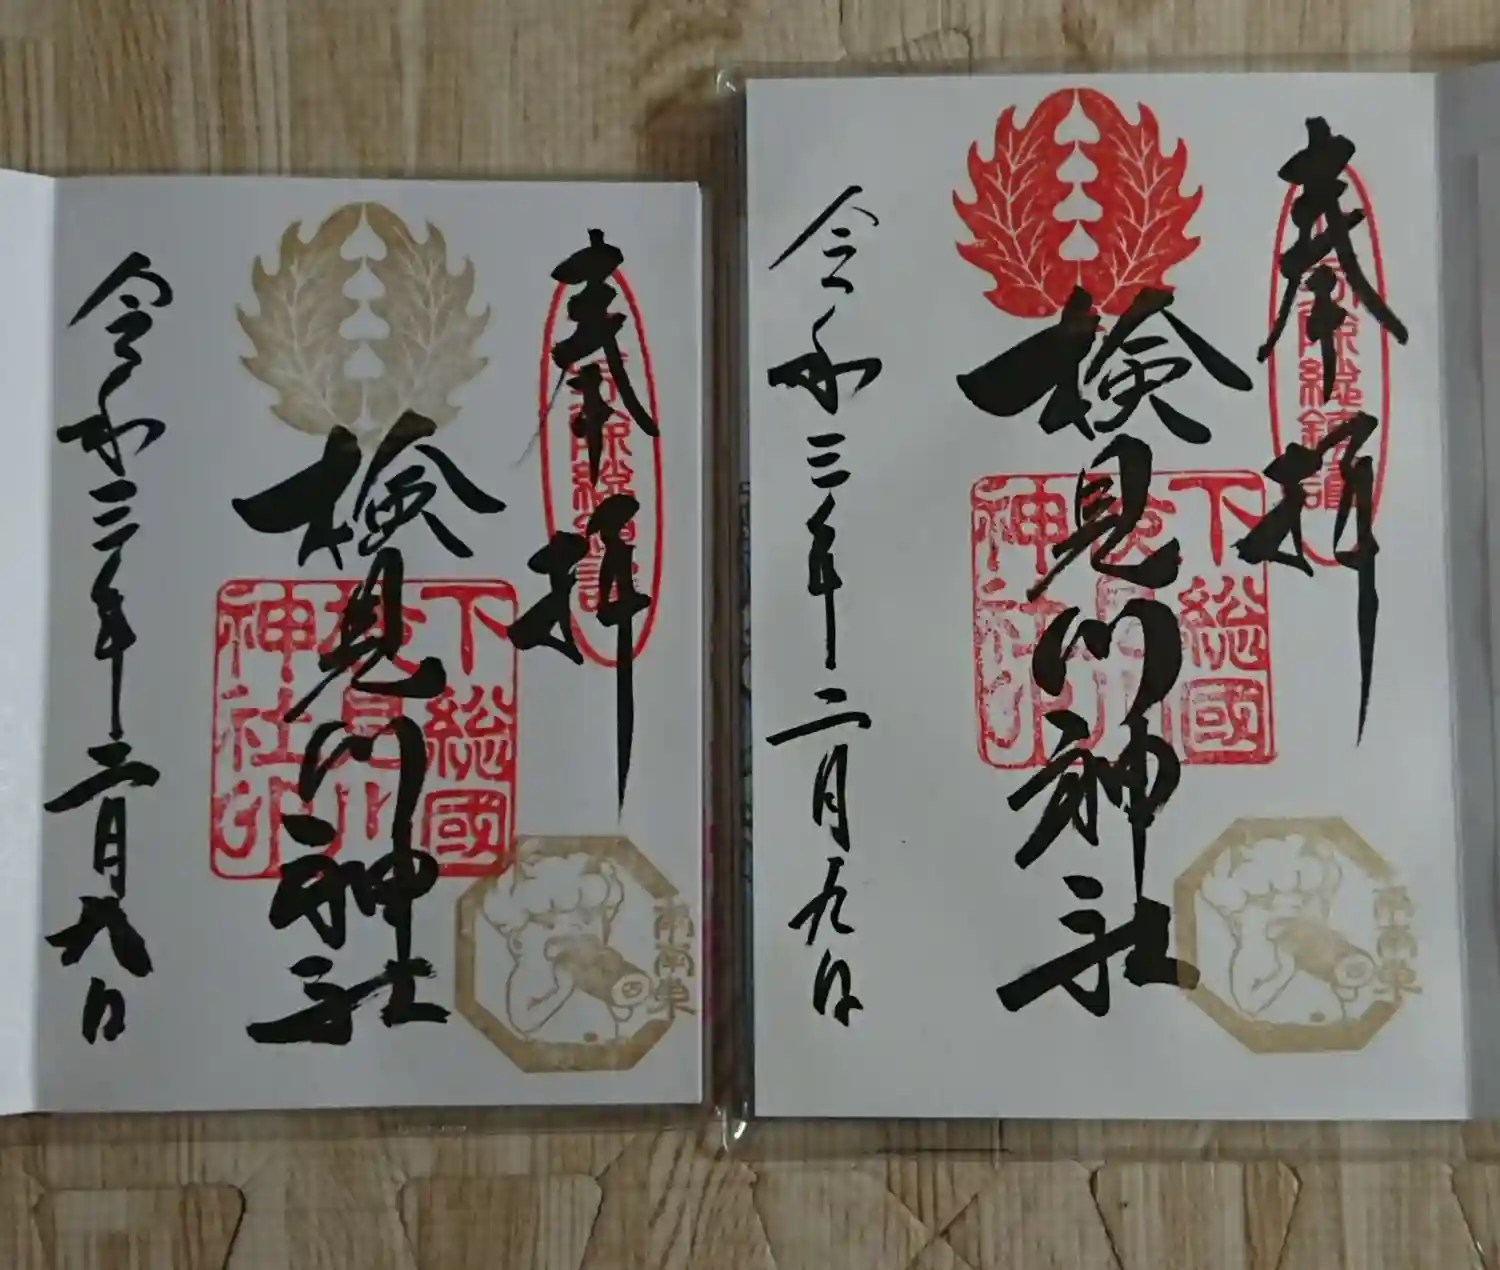 奉拝
検見川神社
下総國
検見川
神社印
令和三年二月九日
南南東
奉拝
検見川神社
下総國
検見川
神社印
令和三年二月九日
南南東